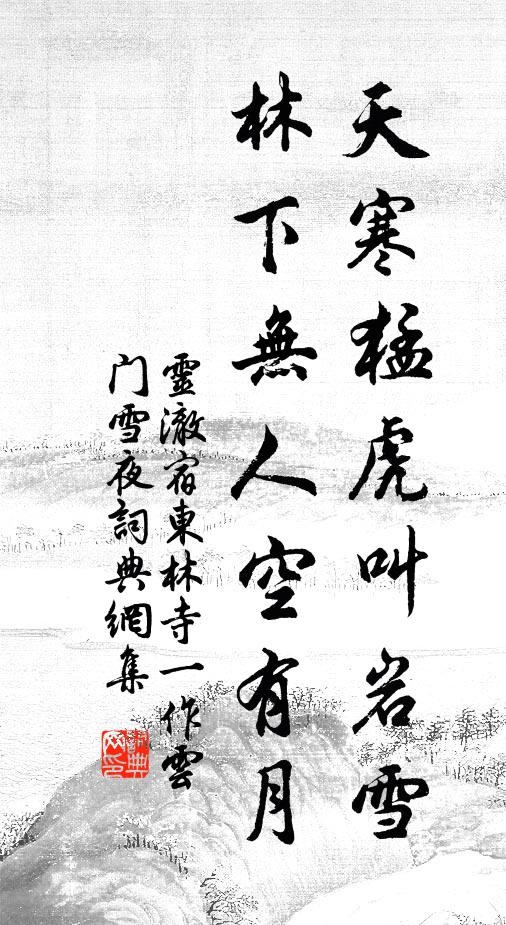 天寒猛虎叫岩雪
林下無人空有月
靈澈宿東林寺一作雲
门雪夜詞典網集
詞典網印